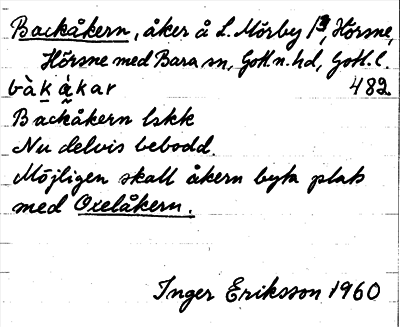 Backåkern, åker å L. Mörby 1³, Hörsne,
Hörsne med Bara sn, Gotl. n. hd, Gotl. l.
bàk ákar 482
Backåkern lskk
Nu delvis bebodd.
Möjligen skall åkern byta plats
med Oxelåkern.
Inger Eriksson 1960